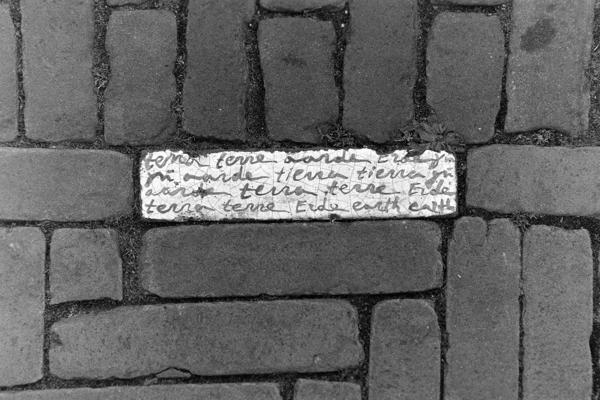 terra terre aarde Erde
aarde tierra tierra
aarde terra terre Erde
terra terre Erde earth earth